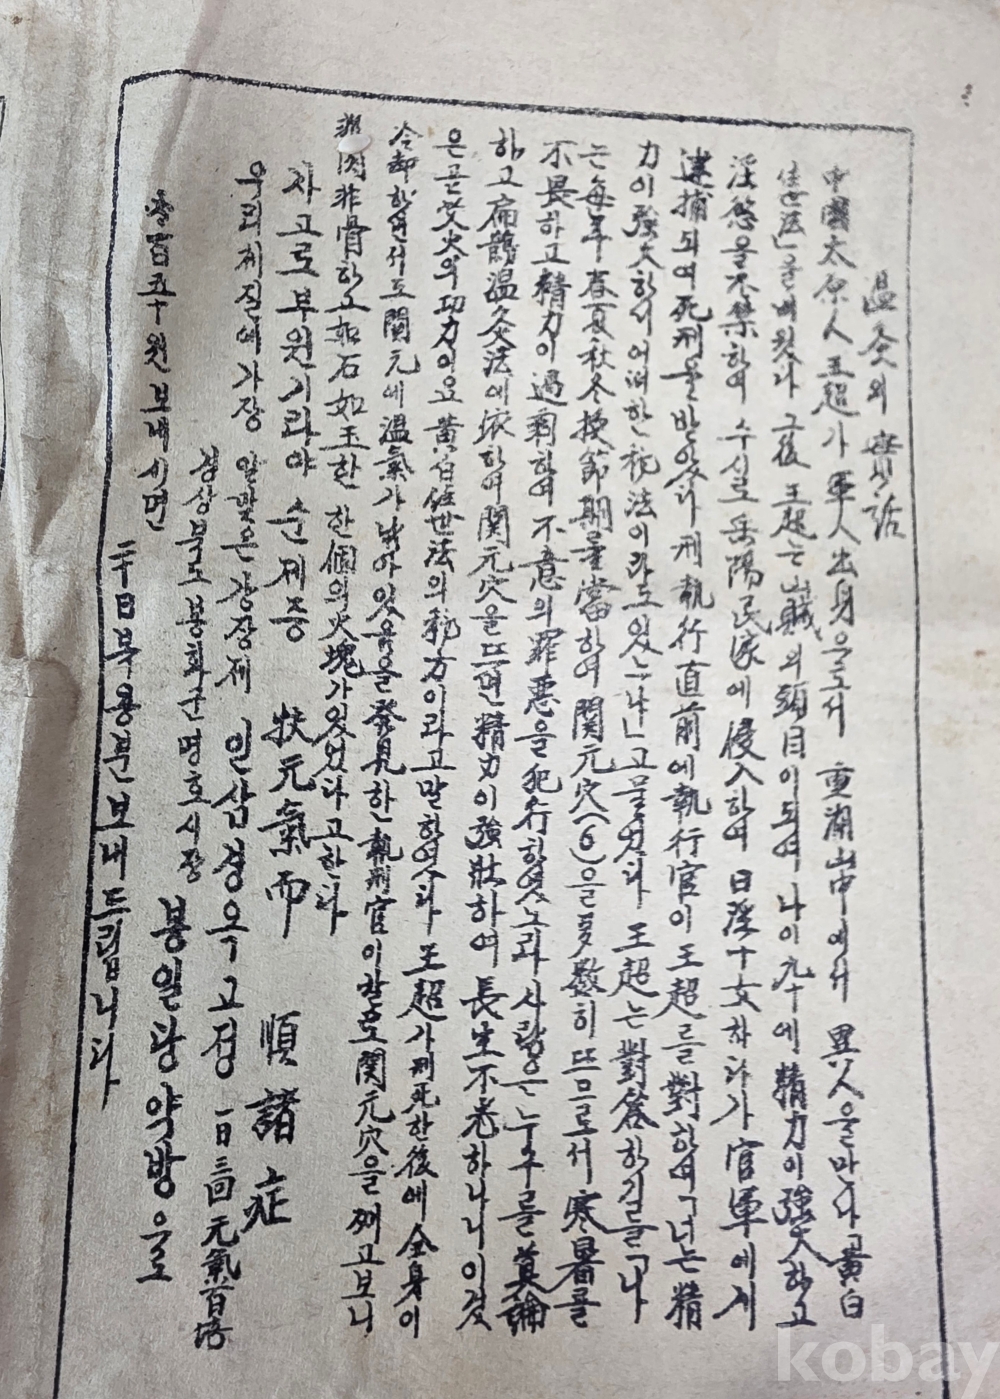 温灸의 實話
中國太原人 王超가 軍人出身으로서 重湖山中에서 異人을만나「黃白
住世法」을배웠다 그後 王超는 山賊의頭目이되여 나이九十에 精力이强大하고
淫慾을不禁하여 수실로 岳陽民家에 侵入하여 日淫十女하다가 官軍에게
逮捕되여 死刑을받았다 刑執行直前에執行官이 王超를對하여「너는精
力이强大하서 어떠한 秘法이라도있느냐」고물었다 王超는對答하길들「나
는每年春夏秋冬換節期를當하여 関元穴(6)을多数히뜨므로서寒暑를
不畏하고精力이過剩하여不意의罪惡을犯行하였노라 사람은누구를莫論
하고扁鵲温灸法에依하여関元穴을뜨면精力이强壯하여長生不老하나니이것
은곧艾火의功力이요黃白住世法의秘方이라고말하였다 王超가刑死한後에全身이
冷却하였서도関元에温氣가남아있음을發見한執刑官이칼로関元穴을째고보니
非肉非骨하고如石如玉한 한個의火塊가있었다고한다
자고로부원기라야 순제증 扶元氣而 順諸症
우리체질에가장 알맞은강장제 인삼경옥고정 一日三回元氣百培
경상북도봉화군명호시장 봉일당약방으로
壱百五十원보내시면
二十日복용분보내드립니다
kobay